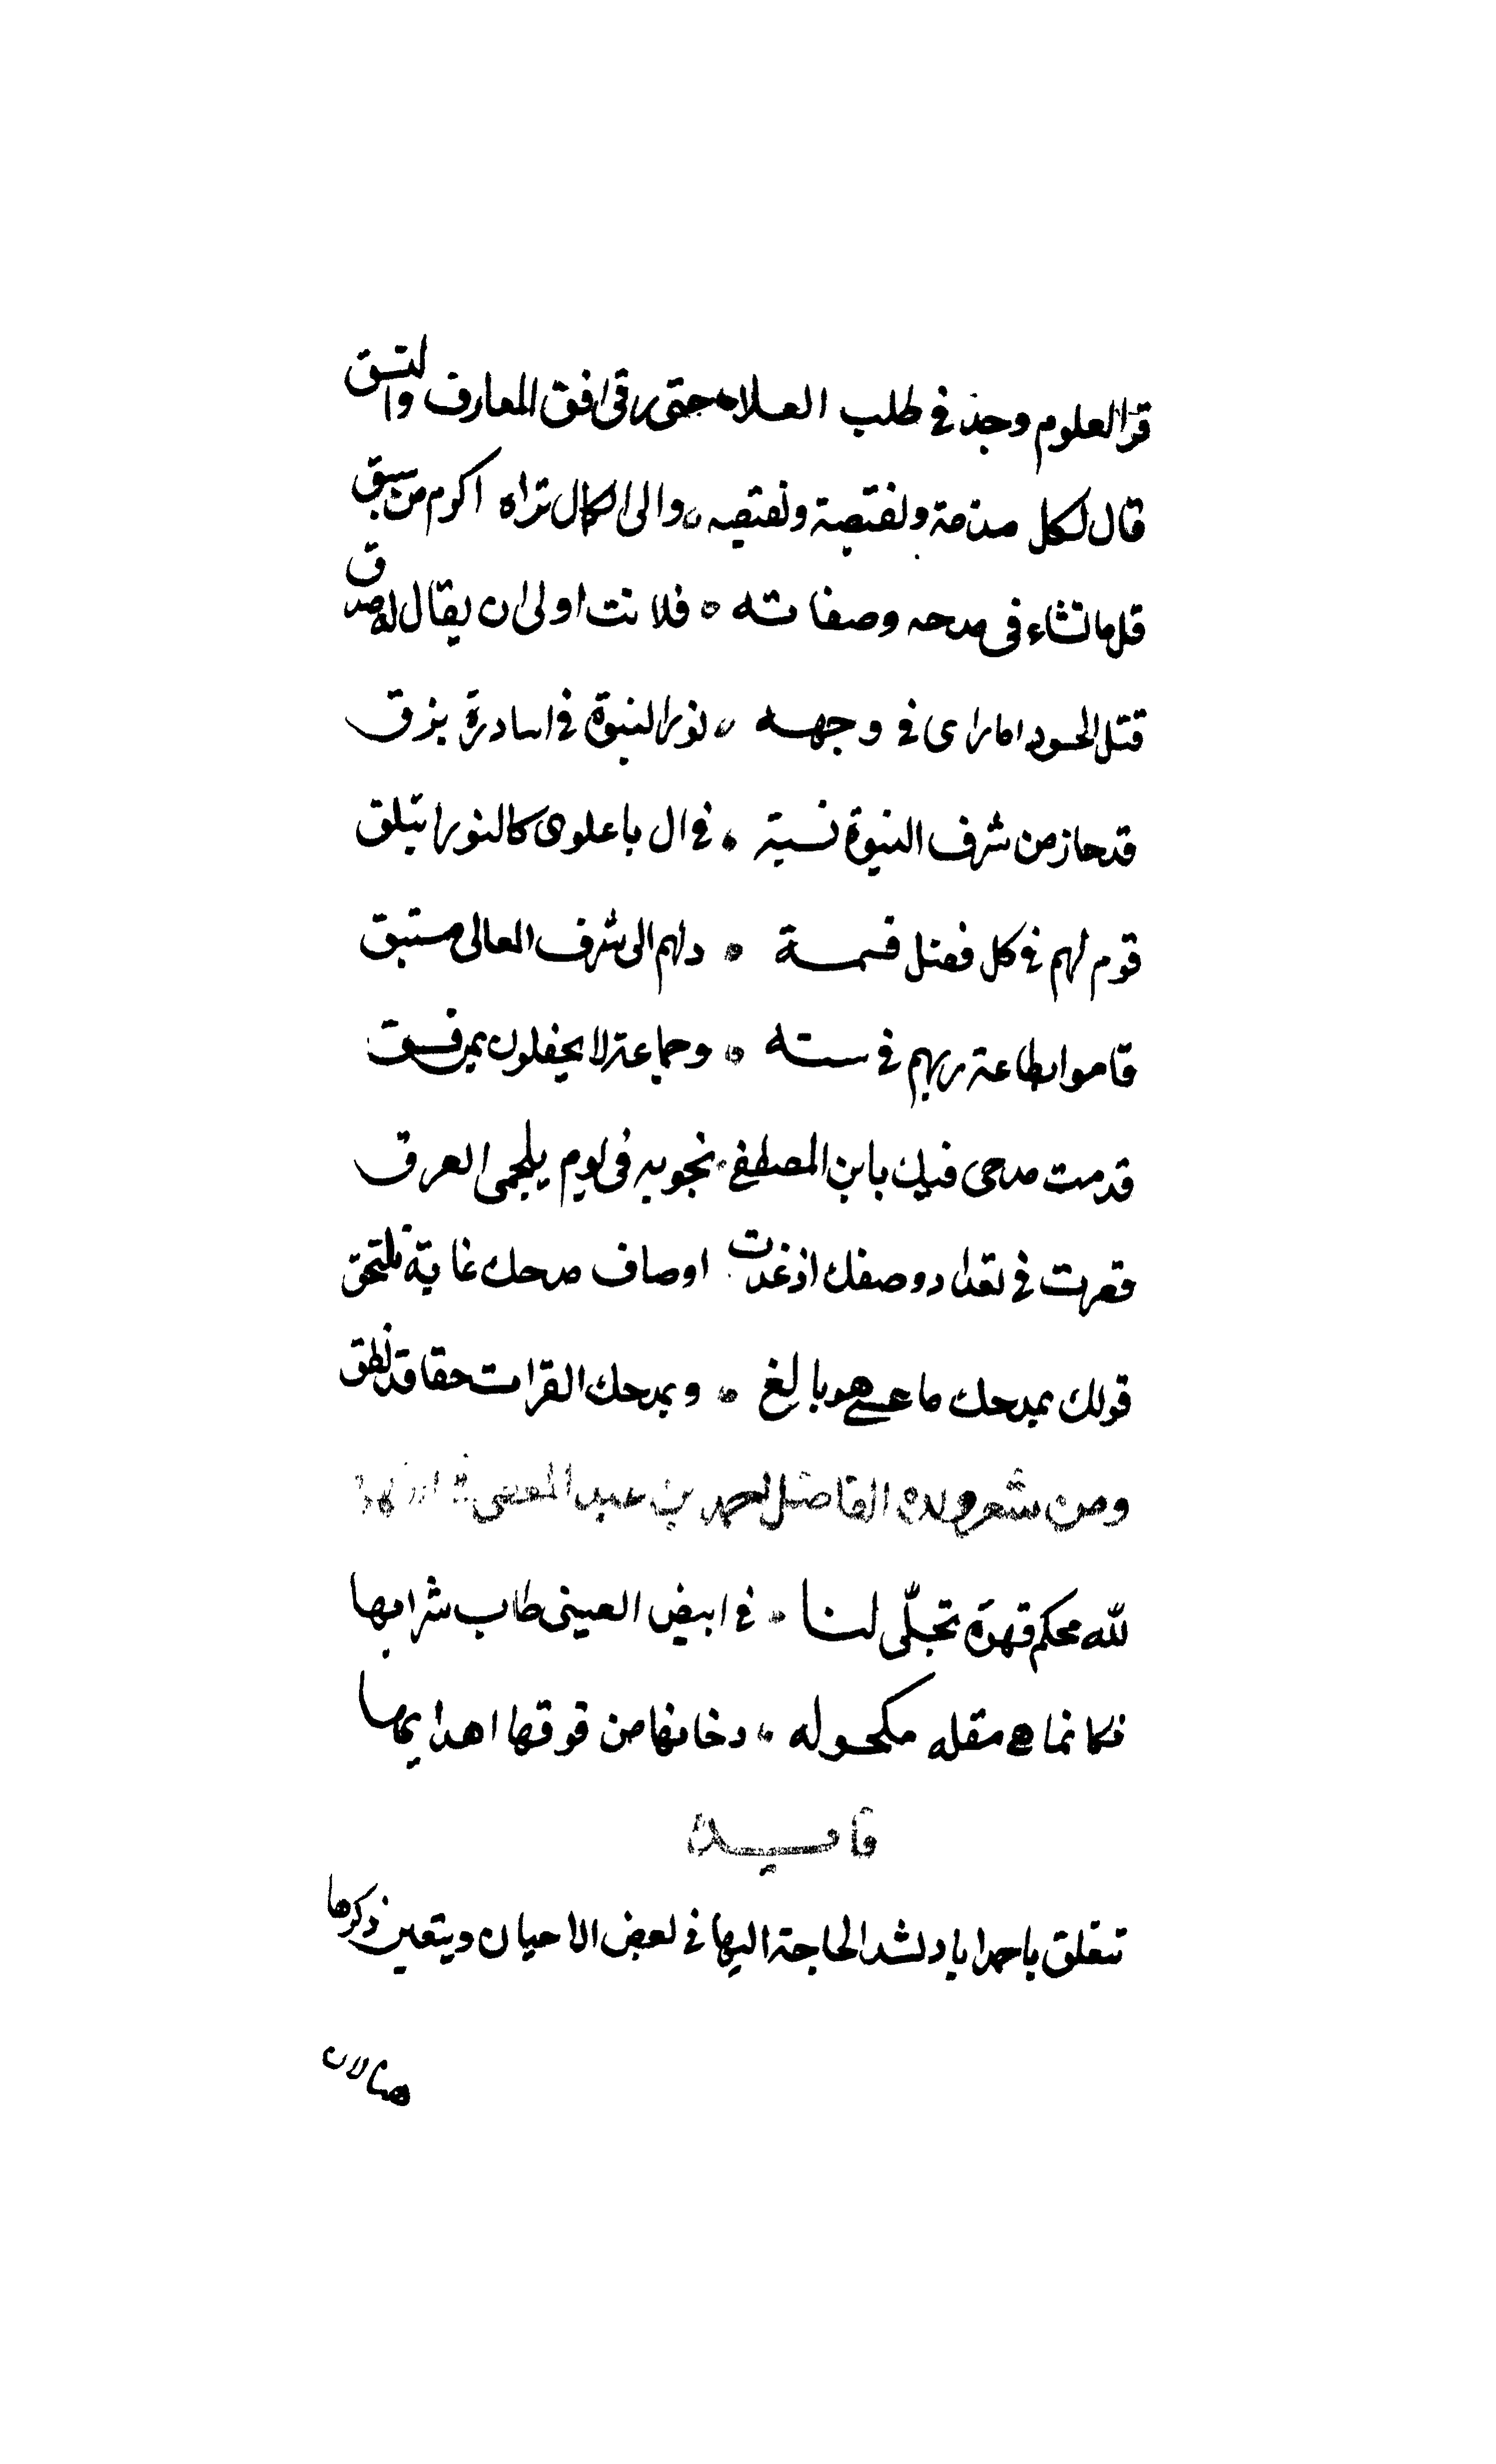 قرا العلوم وجد في طلب العلا ه حتى رقى افق المعارف واتسق
قال لكل مذمة ونقيصة ونقيصه ه والى الكمال تراه اكرم من سبق
قل ما تشاء في مدحه وصفاته ه فلانت اولى ان يقال له صدق
قتل الحسود اما راى في وجهه ه نور النبوة في اسادرة بزق
قد حاز من شرف النبوة نسبة ه في ال باعلوى كالنور ايتلق
قوم لهم في كل فضل قسمة ه ولهم الى شرف العالى مستبق
قاموا بطاعة ربهم في سته ه وجماعة لا يحفلون بمن فسق
قدمت مدحى فيك يا ابن المصطفى نجوبه في يوم يلجمى العرق
قصرت في تعداد وصفك اذ غدت اوصاف مدحك غاية تلتحق
قولك بمدحك ما عسى هو بالغ ه وبمدحك القرات حقا قد نطق
ومن شعر ولده الفاضل احمد بن عبد المعطى
لله محكم قهوة تجلّى لنا ه في ابيض الصينى طاب شرابها
فكانما هي مقله مكحوله ه دخانها من فوقها اهدابها
تتعلق باحمداباد لشد الحاجة اليها في بعض الاحيان ويتعين ذكرها